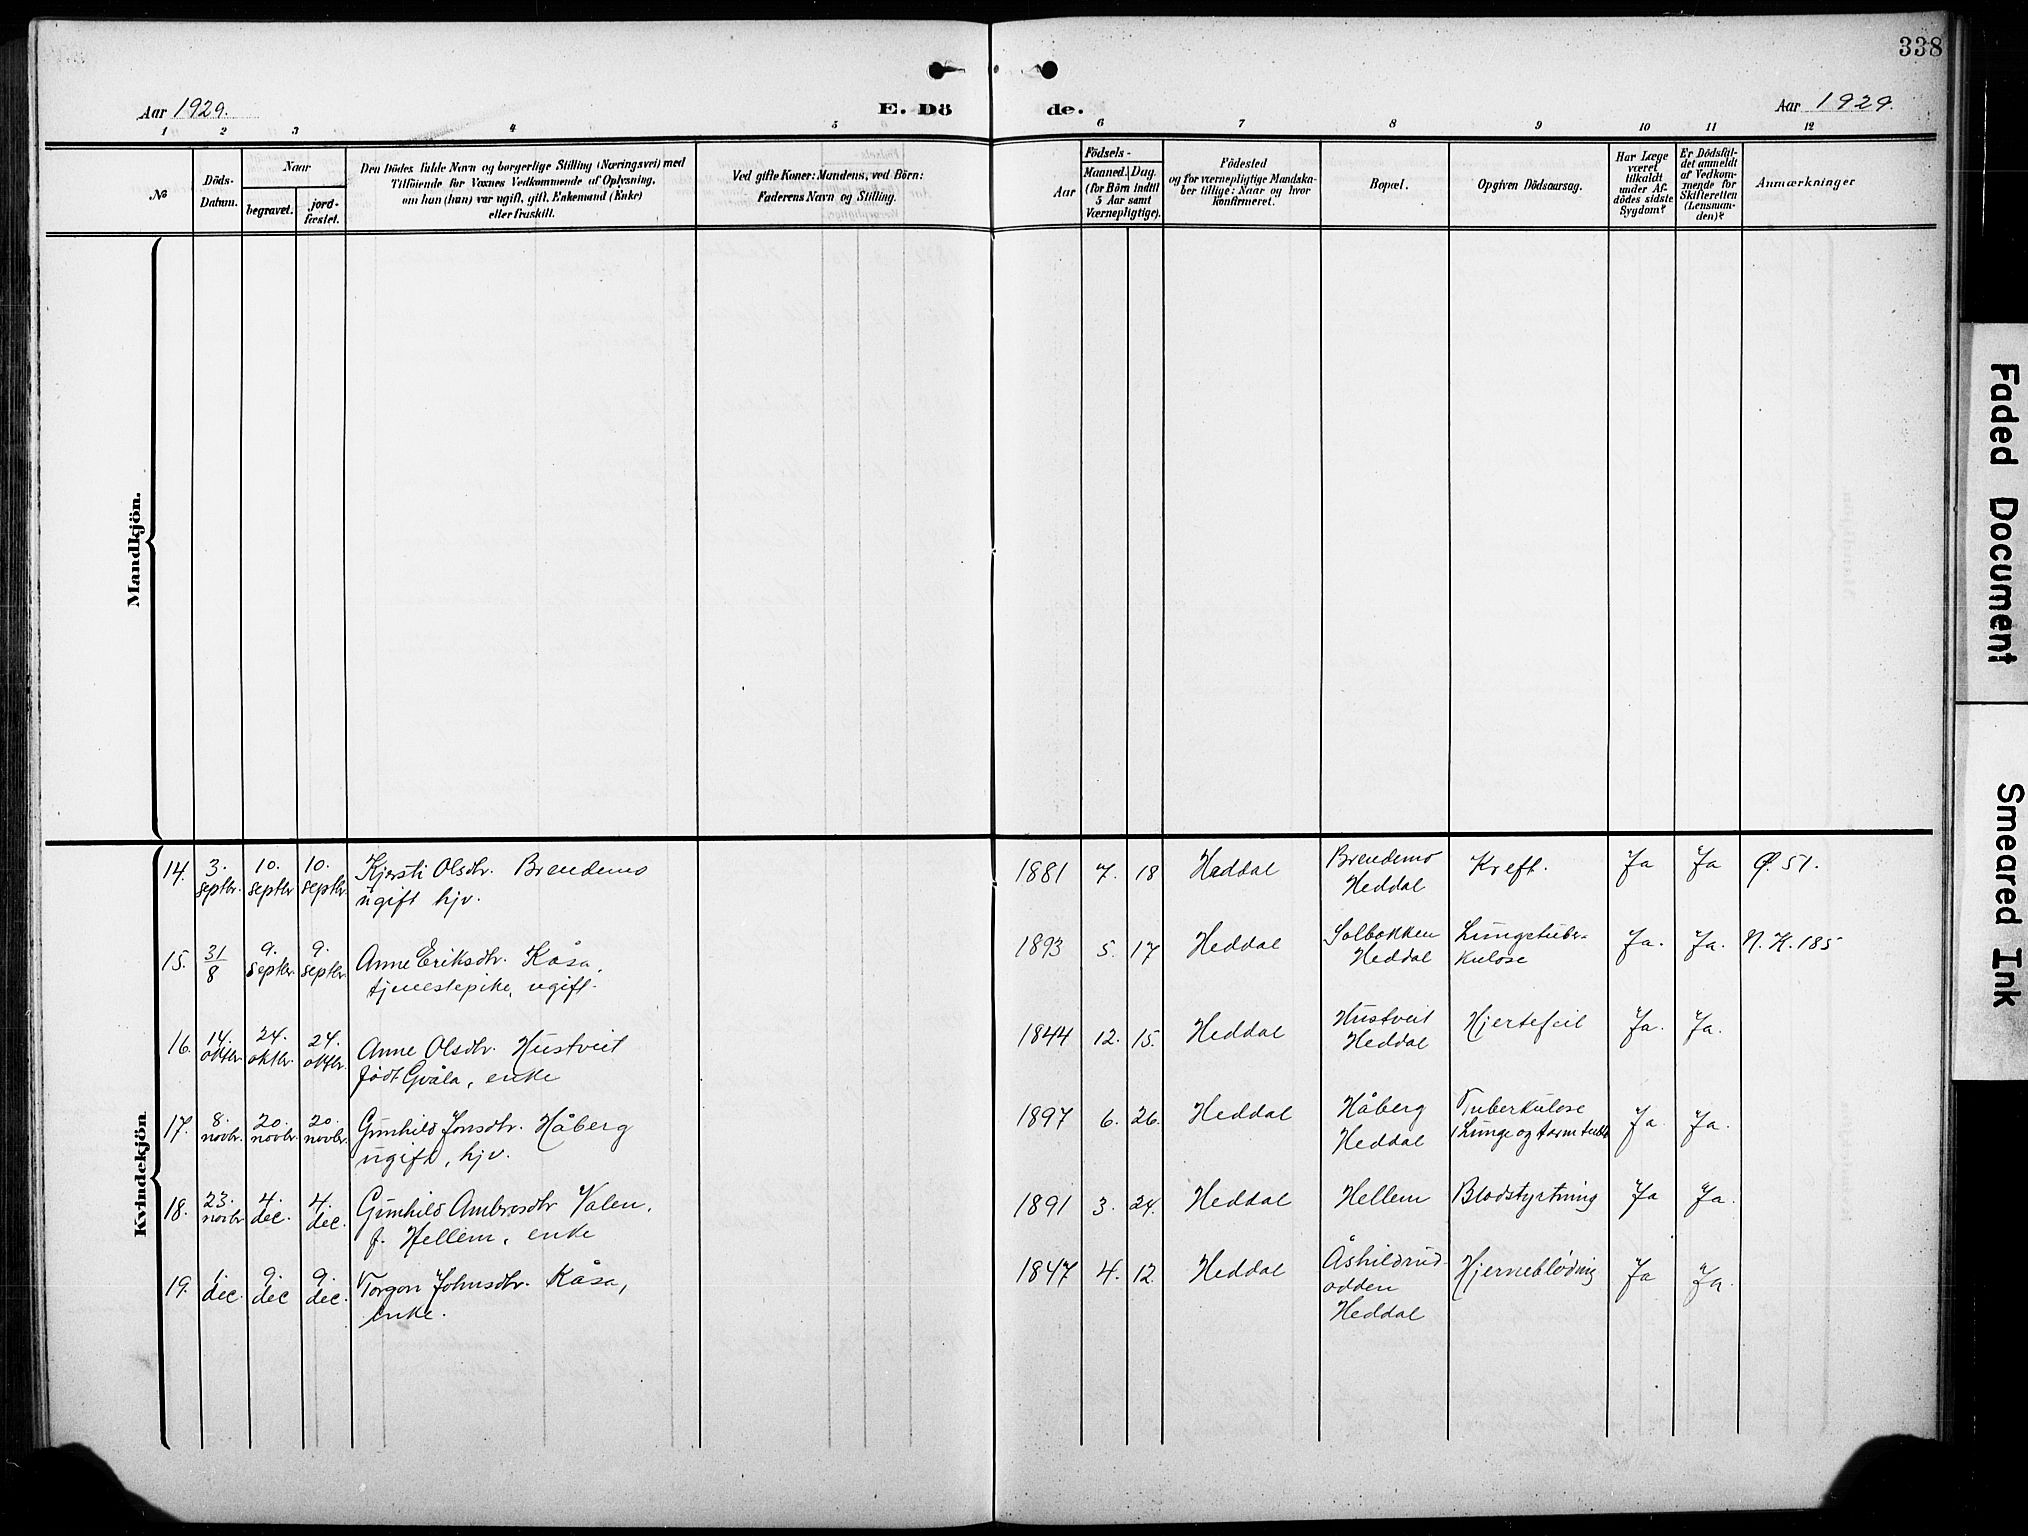 338
Aar 1929.
E. Dö de.
Aar 1929.
1 2 3 4 5 6 7 8 9 10 11 12
No
Döds-
Datum.
Naar
begravet.
jord-
fæstet.
Den Dödes fulde Navn og borgerlige Stilling (Næringsvei) med
Tilföiende for Voxnes Vedkommende af Oplysning,
om han (hun) var ugift, gift, Enkemand (Enke)
eller fraskilt.
Ved gifte Koner: Mandens, ved Börn:
Faderens Navn og Stilling.
Födsels-
Aar
Maaned. Dag.
(for Börn indtil
5 Aar samt
Værnepligtige).
Födested
og for værnepligtige Mandska-
ber tillige: Naar og hvor
konfirmeret.
Bopæl.
Opgiven Dödsaarsag.
Har Læge
været
tilkaldt
under Af-
dödes sidste
Sygdom?
Er Dödsfal-
det anmeldt
af Vedkom-
mende for
Skifteretten
(Lensman-
den)?
Anmærkninger
Mandkjön.
Kvindekjön
14. 3. septbr. 10. septbr 10. septbr. Kjersti Olsdtr. Brendemo 1881 7. 18 Heddal Brendemo Kreft. Ja Ja Ø. 51.
ugift hjv. Heddal
15. 31/8 9. septbr. 9. septbr. Anne Eriksdtr. Kåsa, 1893 5. 17 Heddal Solbakken Lungetuber- Ja. Ja. N. K. 185
tjenestepike, ugift. Heddal kulose
16. 14. oktbr. 24. oktbr. 24. oktbr. Anne Olsdtr. Hustveit 1844 12. 15. Heddal Hustveit Hjertefeil Ja. Ja.
født Gvåla, enke Heddal
17. 8. novbr. 20. novbr. 20. novbr. Gunhild Jonsdtr. Håberg 1897 6. 26. Heddal Håberg Tuberkulose Ja. Ja.
ugift, hjv. Heddal Lunge og tarm
18. 23. novbr 4. dec. 4. dec. Gunhild Ambrosdtr Valen, 1891 3. 24. Heddal Hellem Blodstyrtning Ja Ja.
f. Hellem, enke
19. 1. dec. 9. dec 9. dec. Torgon Johnsdtr. Kåsa, 1847 4. 12. Heddal Åshildrud- Hjerneblødning Ja Ja.
enke. odden
Heddal
Faded Document
Smeared Ink